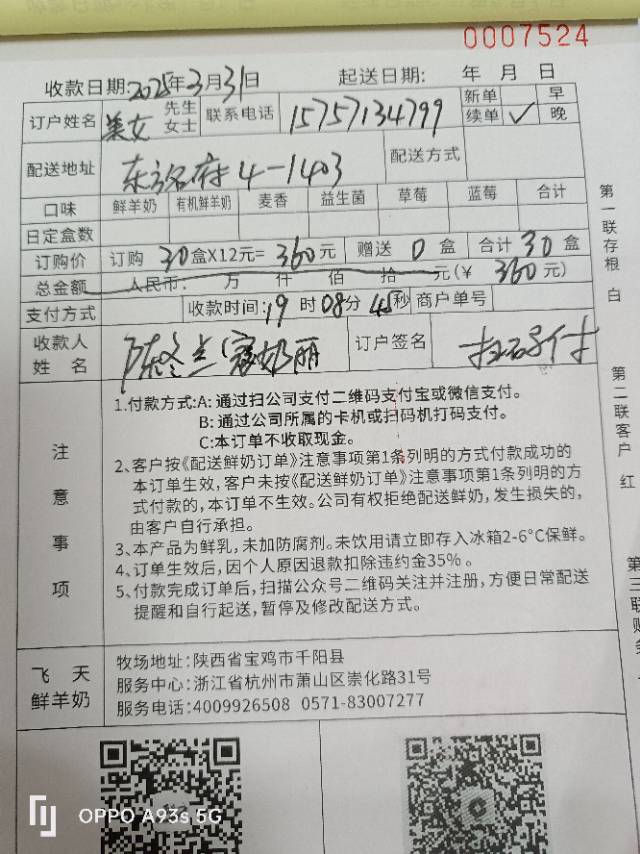 0007524
收款日期:2025年3月31日 起送日期: 年 月 日
订户姓名 美女 先生 女士 联系电话 15757134799 新单 续单 ✓ 早 晚
配送地址 东方名府4-1403 配送方式
口味 鲜羊奶 有机鲜羊奶 麦香 益生菌 草莓 蓝莓 合计
日定盒数
订购价 订购 30 盒X12元= 360 元 赠送 0 盒 合计 30 盒
总金额 人民币: 万 仟 佰 拾 元(¥ 360 元)
支付方式 收款时间: 19 时 08 分 45 秒 商户单号
收款人 姓名 陈冬兰 奶丽 订户签名 扫码付
注意事项
1.付款方式:A: 通过扫公司支付二维码支付宝或微信支付。
B: 通过公司所属的卡机或扫码机打码支付。
C:本订单不收取现金。
2、客户按《配送鲜奶订单》注意事项第1条列明的方式付款成功的
本订单生效,客户未按《配送鲜奶订单》注意事项第1条列明的方
式付款的,本订单不生效。公司有权拒绝配送鲜奶,发生损失的,
由客户自行承担。
3、本产品为鲜乳,未加防腐剂。未饮用请立即存入冰箱2-6°C保鲜。
4、订单生效后,因个人原因退款扣除违约金35%。
5、付款完成订单后,扫描公众号二维码关注并注册,方便日常配送
提醒和自行起送,暂停及修改配送方式。
飞天
鲜羊奶
牧场地址:陕西省宝鸡市千阳县
服务中心:浙江省杭州市萧山区崇化路31号
服务电话:4009926508 0571-83007277
第一联存根 白
第二联客户 红
第三联财务
OPPO A93s 5G